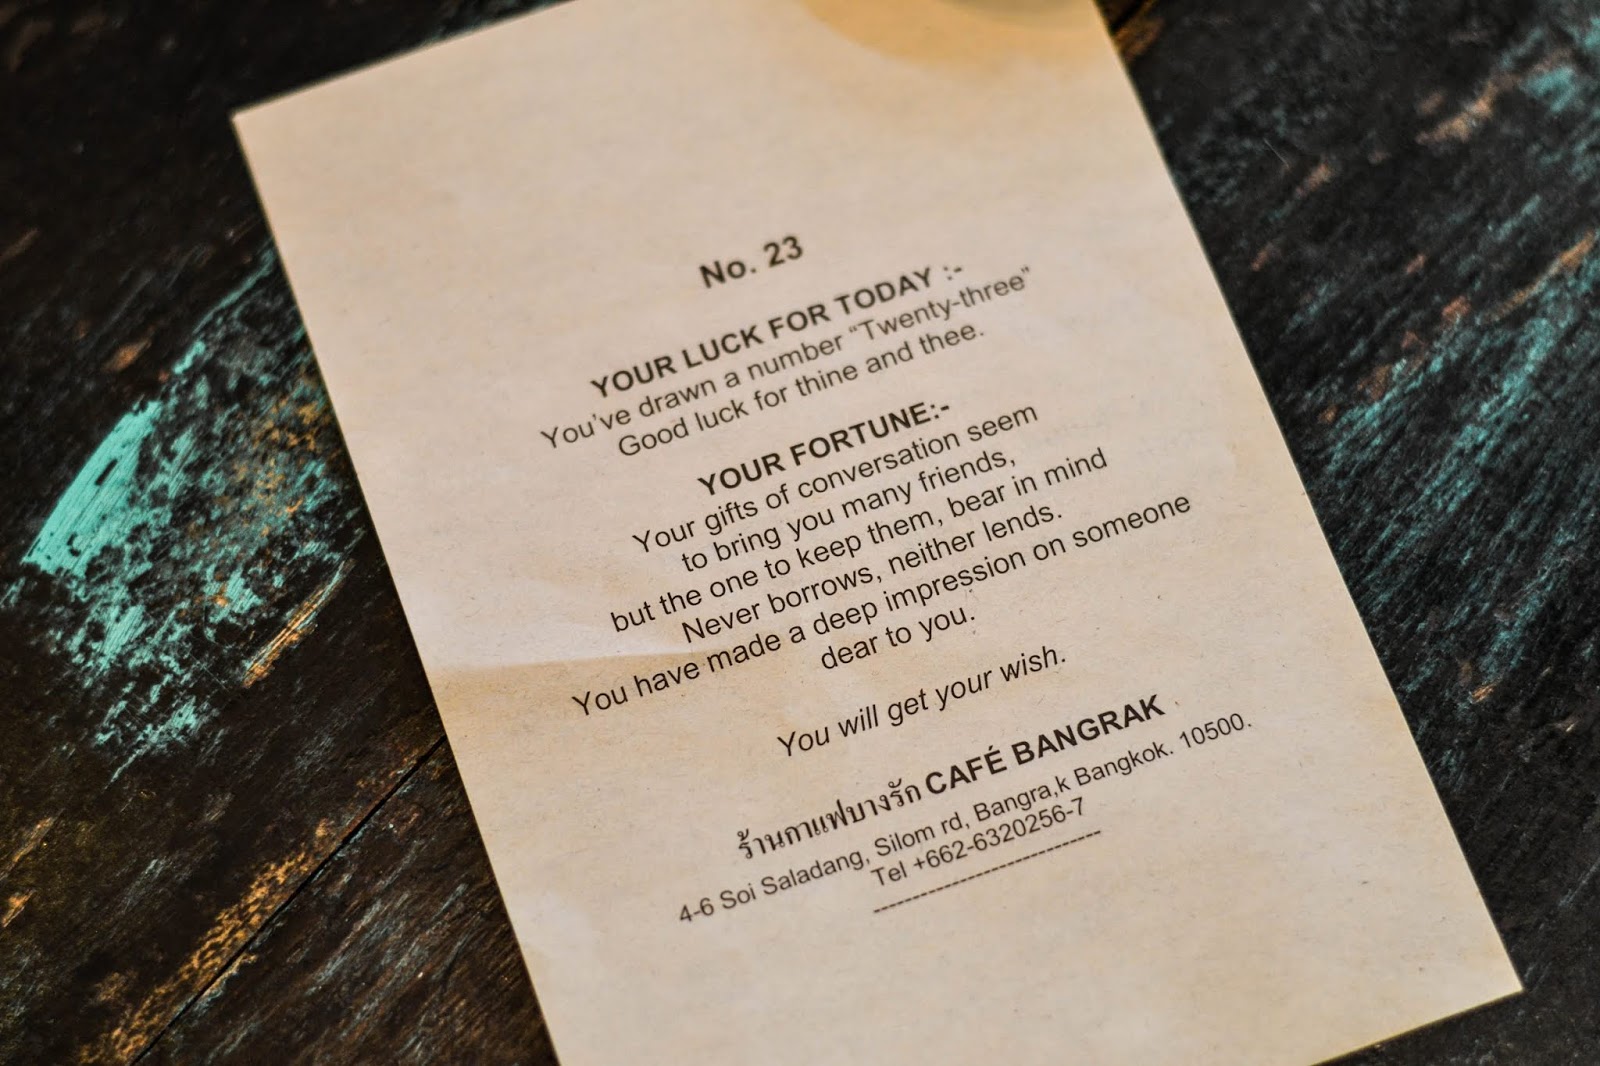 No. 23
YOUR LUCK FOR TODAY :-
You've drawn a number “Twenty-three”
Good luck for thine and thee.
YOUR FORTUNE:-
Your gifts of conversation seem
to bring you many friends,
but the one to keep them, bear in mind
Never borrows, neither lends.
You have made a deep impression on someone
dear to you.
You will get your wish.
ร้านกาแฟบางรัก CAFÉ BANGRAK
4-6 Soi Saladang, Silom rd, Bangra,k Bangkok. 10500.
Tel +662-6320256-7
------------------------------